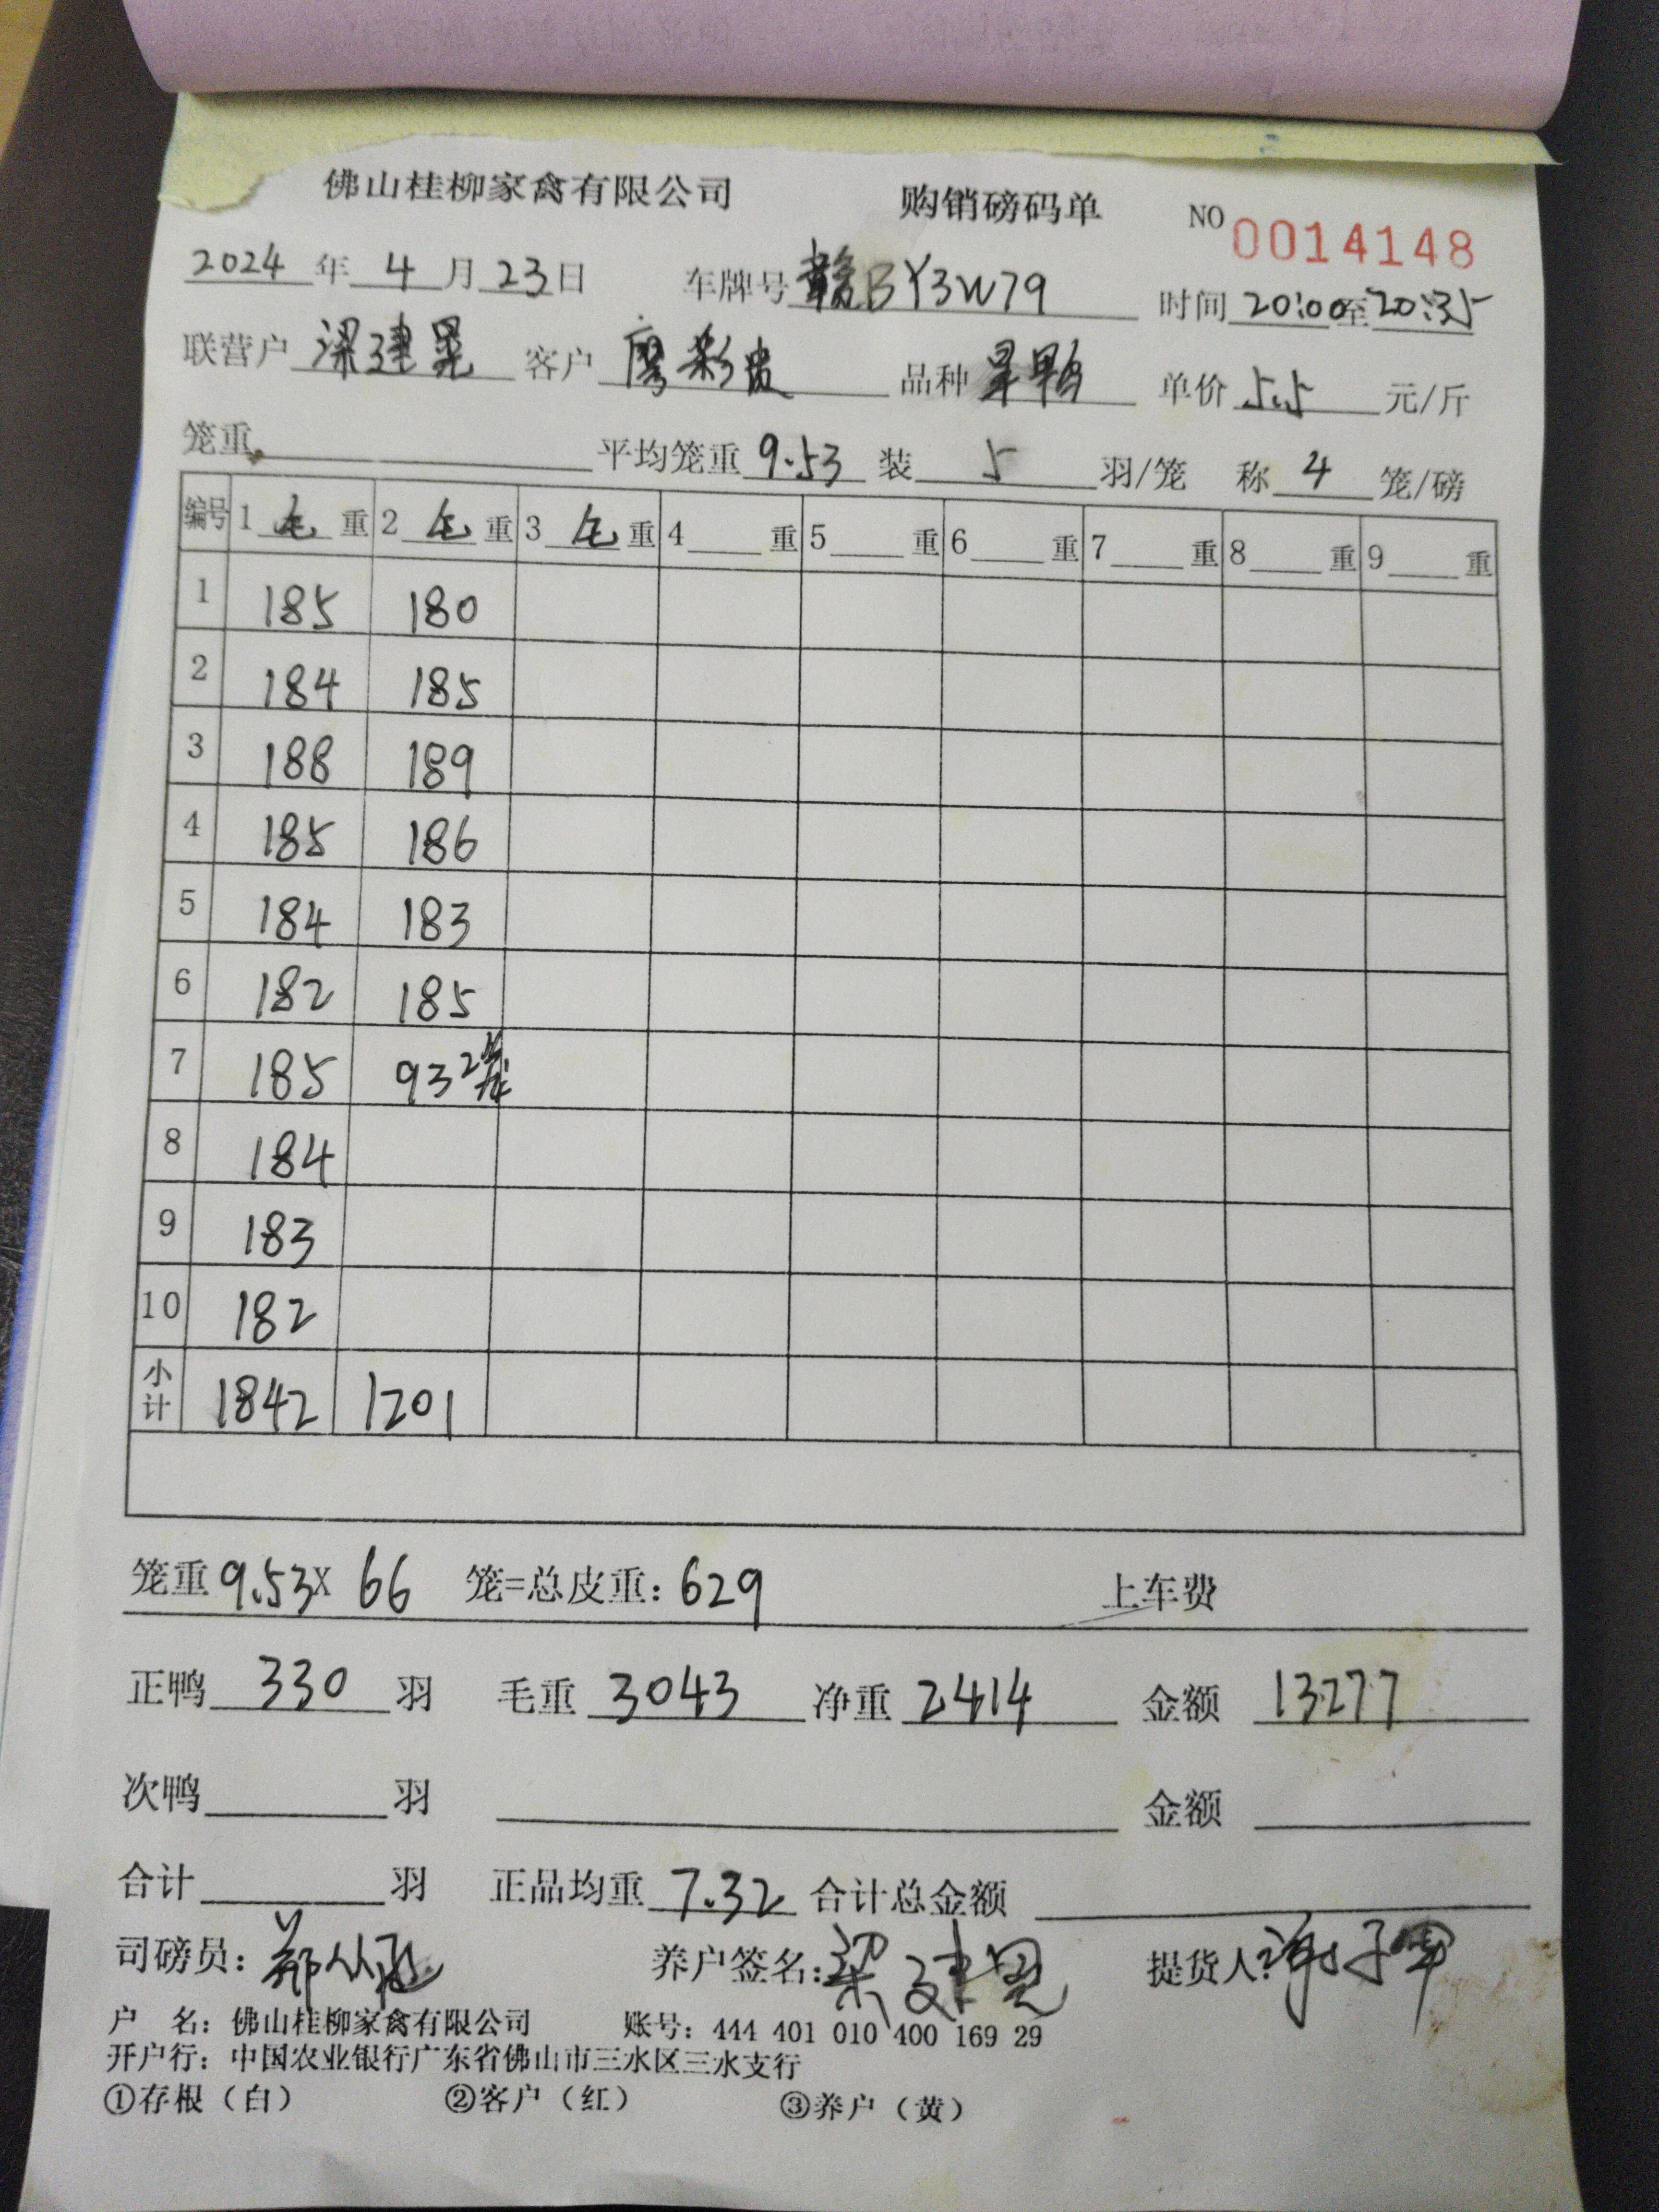 佛山桂柳家禽有限公司 购销磅码单 NO 0014148
2024 年 4 月 23 日 车牌号 赣BY3W79 时间 20:00 至 20:35
联营户 梁建晃 客户 廖彩贵 品种 旱鸭 单价 5.5 元/斤
笼重 平均笼重 9.53 装 5 羽/笼 称 4 笼/磅
编号 1 毛 重 2 毛 重 3 毛 重 4 重 5 重 6 重 7 重 8 重 9 重
1 185 180
2 184 185
3 188 189
4 185 186
5 184 183
6 182 185
7 185 93 2笼
8 184
9 183
10 182
小计 1842 1201
笼重 9.53 X 66 笼=总皮重: 629 上车费
正鸭 330 羽 毛重 3043 净重 2414 金额 13277
次鸭 羽 金额
合计 羽 正品均重 7.32 合计总金额
司磅员: 养户签名: 梁建晃 提货人:
户 名: 佛山桂柳家禽有限公司 账号: 444 401 010 400 169 29
开户行: 中国农业银行广东省佛山市三水区三水支行
①存根（白） ②客户（红） ③养户（黄）